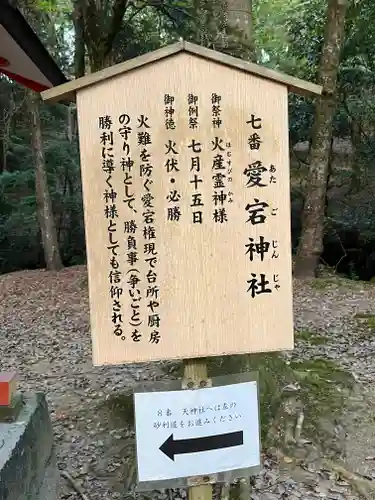 七番 愛宕神社
あたごじんじゃ
御祭神 火産霊神様
ほむすびのかみ
御例祭 七月十五日
御神徳 火伏・必勝
火難を防ぐ愛宕権現で台所や厨房
の守り神として、勝負事（争いごと）を
勝利に導く神様としても信仰される。
8番 天神社へは左の
砂利道をお進みください